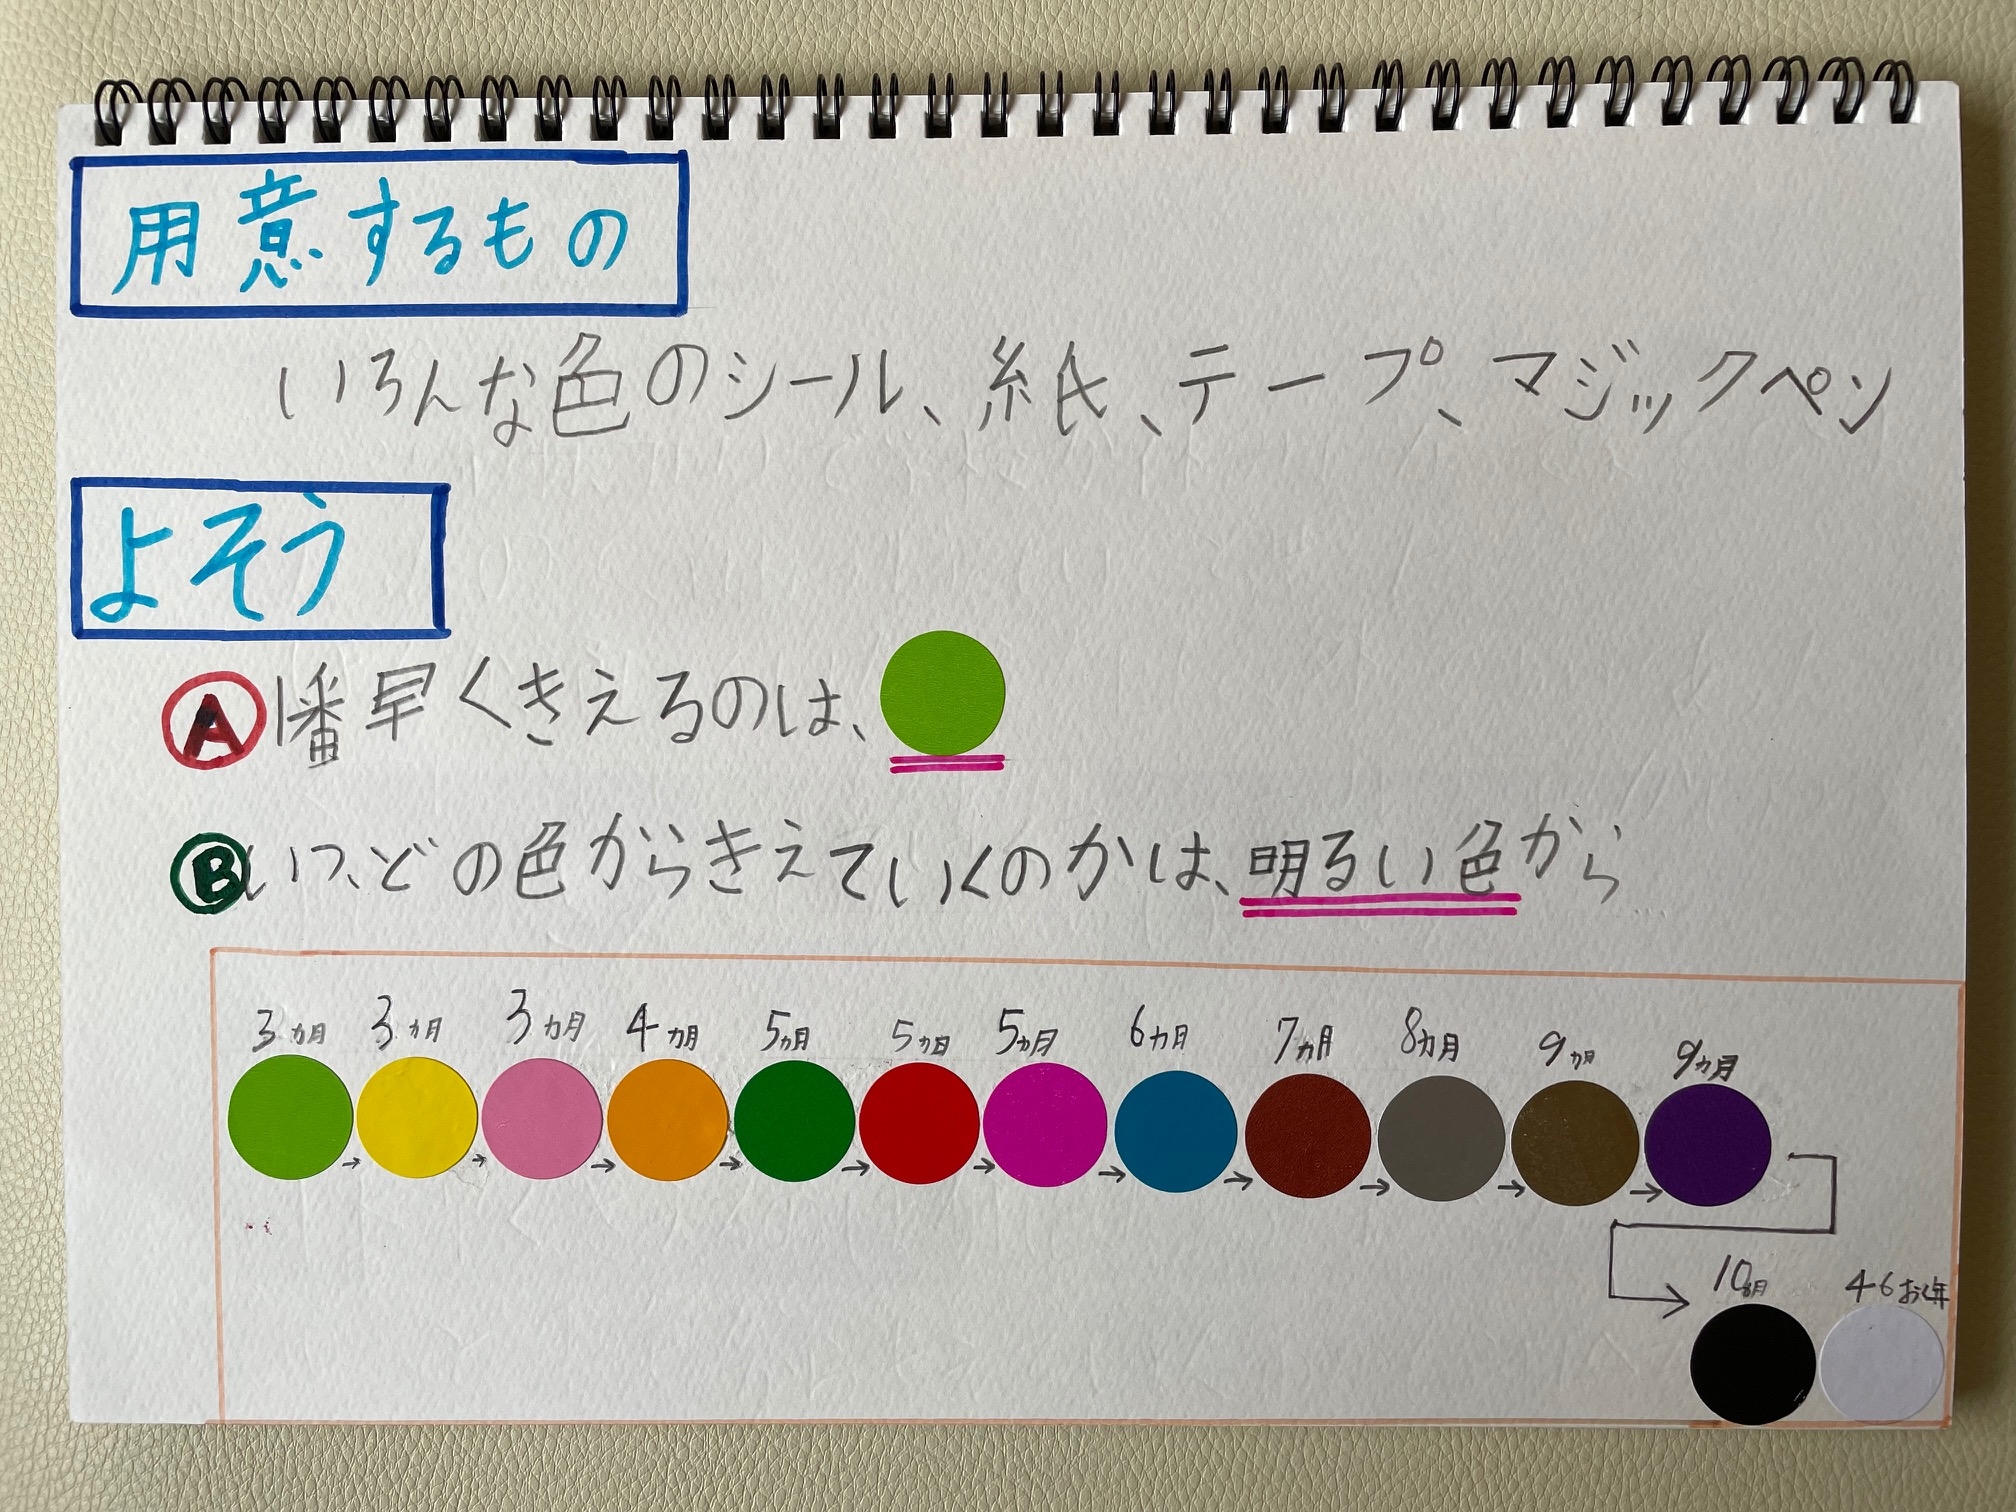 用意するもの
いろんな色のシール、紙、テープ、マジックペン
よそう
A 1番早くきえるのは、
B いつ、どの色からきえていくのかは、明るい色から
3ヵ月 3ヵ月 3ヵ月 4ヵ月 5ヵ月 5ヵ月 5ヵ月 6ヵ月 7ヵ月 8ヵ月 9ヵ月 9ヵ月
→ → → → → → → → → → →
10ヵ月 46おく年